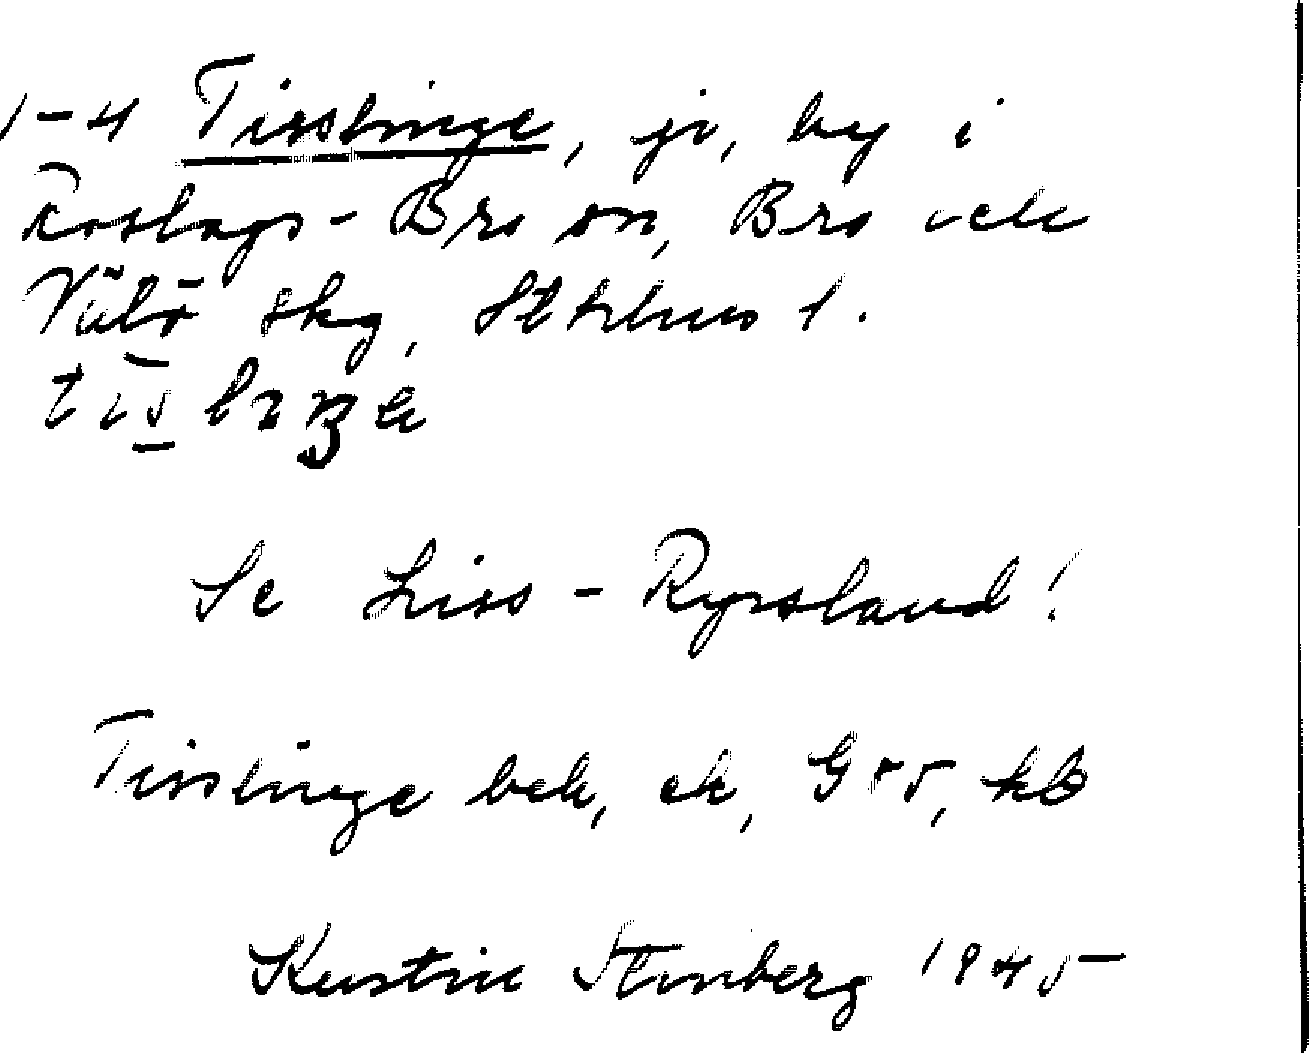 1-4 Tisslinge, jr, by i
Roslags-Bro sn, Bro och
Vätö skg, Sthlms l.
Se Liss-Ryssland!
Tisslinge bek, ek, Grö, kb
Kerstin Stenberg 1945